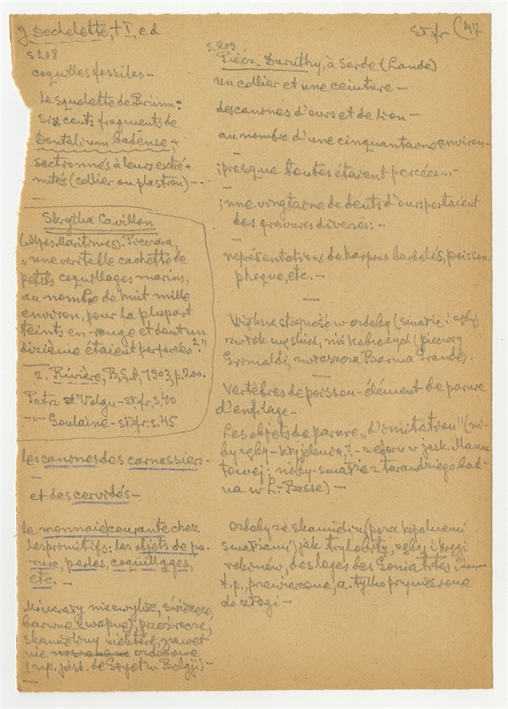 J. Dechelette, t I, cd
st. fr (47
s 208
coquilles fossiles –
Le squelette de Brünn:
six cents fragments de
Dentalium Badense,
sectionnés à leurs extré-
mités (collier ou plastron) –
Skrytka Cavillon
(Alpes Maritimes).
„ une veritable cachette de
petits coquillages marins,
au nombre de huit mille
environ, pour la plupart
teints en rouge et dont un
dixième étaient perforées 2"
2. Rivière, B.S.A, 1903, p. 200.
Patrz st Volgu – st. fr, s. 40
–"– Goulaine – st. fr. s. 45
les canines des carnassiers –
et des cervidés –
la monnaie courante chez
les primitifs: les objets de pa-
rure, perles, coquillages,
etc. –
Minerały niezwykłe, świecące,
barwne (wapne), przeźrocze,
skamieliny niektóre, nawet
nie ozdobowe
(np. jask. de Goyet w Belgji) –
s. 209
Piecz. Duruthy, à Sorde (Lande)
un collier et une ceinture –
des canines d'ours et de lion –
au nombre d'une cinquantaine environ –
; presque toutes étaient percées... –
; une vingtaine de dents d'ours portaient
des gravures diverses: –
représentations de harpons barbelés, poisson,
phoque, etc. –
Większa strojność w ozdoby (
zwłok męskich, niż kobiecych (pieczary
Grimaldi, zwłaszcza Barma Grande).
Vertèbres de poisson – élément de parure
d'enfilage –
Les objets de parure „d'imitation" (
w L. Basse) –
Ozdoby ze skamielin (poza kopalnemi
) jak trylobity, zęby i kręgi
rekinów, des loges des Goniatites i
t. p., przewiercone, a tylko przyniesione
do z łogi –